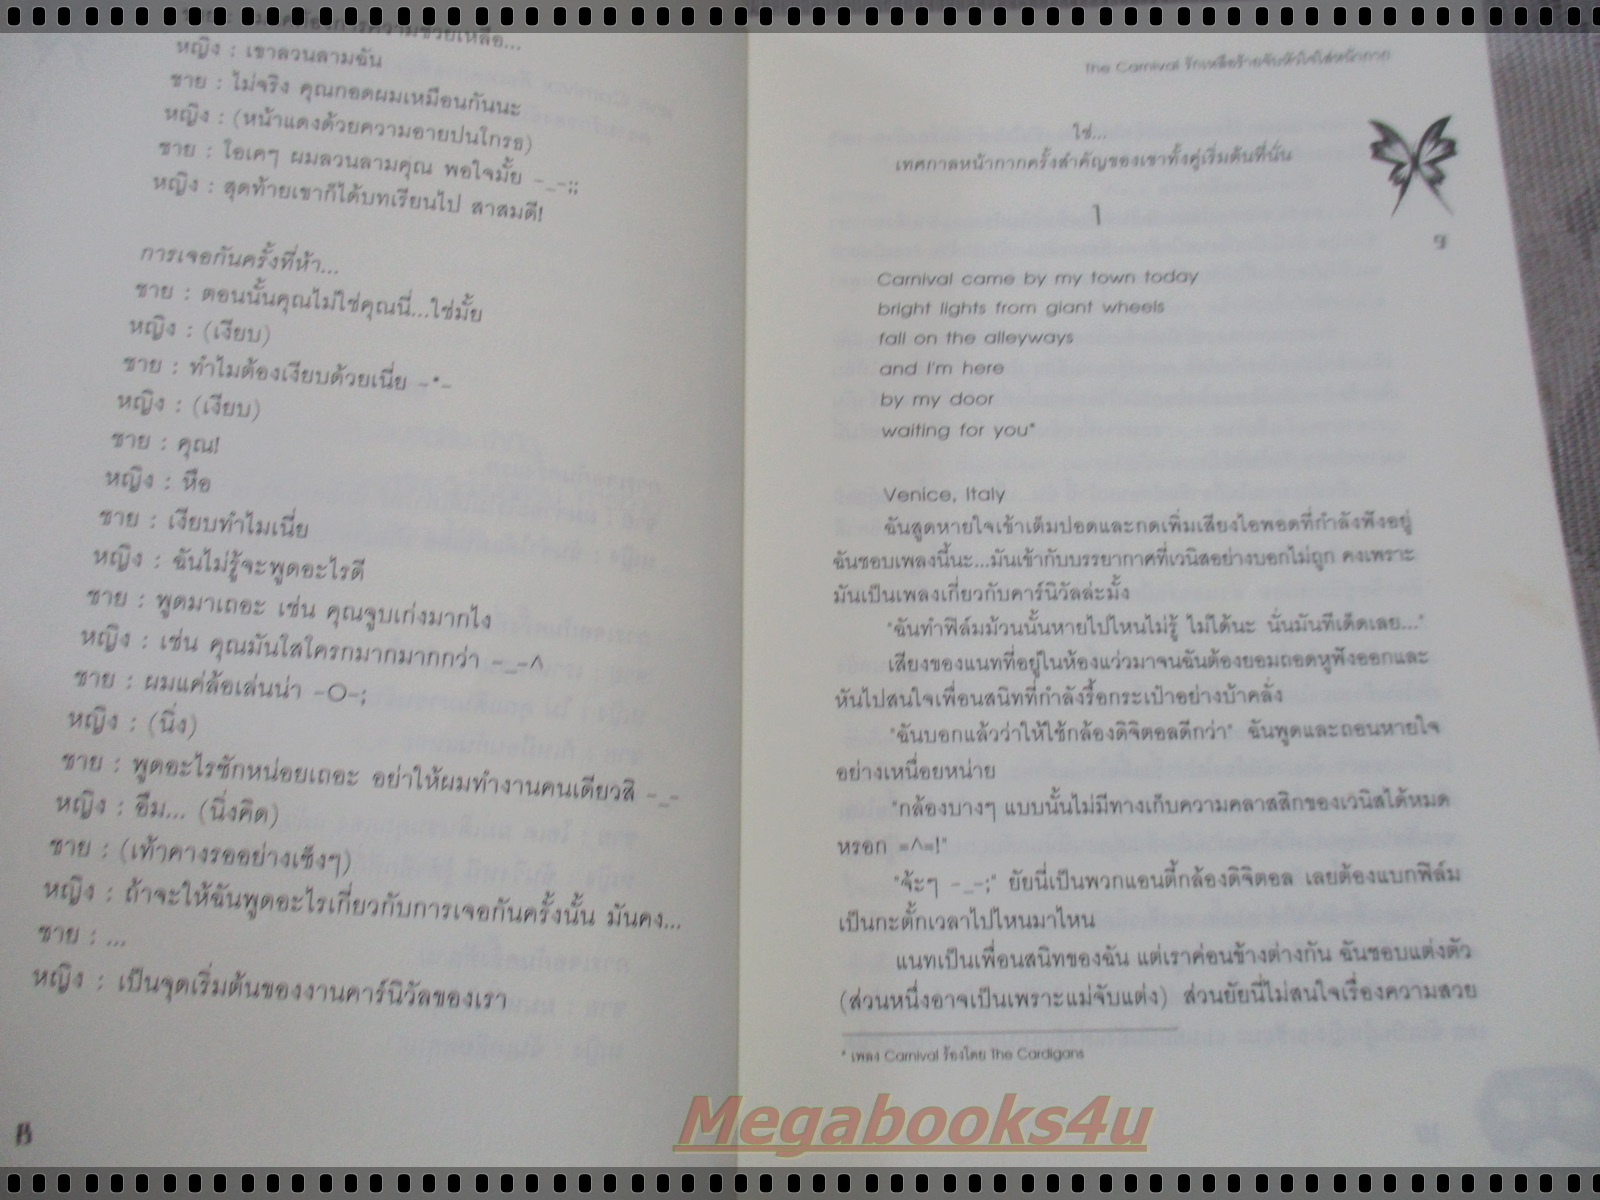 หญิง : เขาลวนลามฉัน
ชาย : ไม่จริง คุณกอดผมเหมือนกันนะ
หญิง : (หน้าแดงด้วยความอายปนโกรธ)
ชาย : โอเคๆ ผมลวนลามคุณ พอใจมั้ย -_-;;
หญิง : สุดท้ายเขาก็ได้บทเรียนไป สาสมดี!
การเจอกันครั้งที่ห้า...
ชาย : ตอนนั้นคุณไม่ใช่คุณนี่...ใช่มั้ย
หญิง : (เงียบ)
ชาย : ทำไมต้องเงียบด้วยเนี่ย -*-
หญิง : (เงียบ)
ชาย : คุณ!
หญิง : หือ
ชาย : เงียบทำไมเนี่ย
หญิง : ฉันไม่รู้จะพูดอะไรดี
ชาย : พูดมาเถอะ เช่น คุณจูบเก่งมากไง
หญิง : เช่น คุณมันใสใครกมากมากกว่า -_-^
ชาย : ผมแค่ล้อเล่นน่า -O-;
หญิง : (นิ่ง)
ชาย : พูดอะไรซักหน่อยเถอะ อย่าให้ผมทำงานคนเดียวสิ -_-
หญิง : อืม... (นิ่งคิด)
ชาย : (เท้าคางรออย่างเซ็งๆ)
หญิง : ถ้าจะให้ฉันพูดอะไรเกี่ยวกับการเจอกันครั้งนั้น มันคง...
ชาย : ...
หญิง : เป็นจุดเริ่มต้นของงานคาร์นิวัลของเรา
The Carnival รักเหลือร้ายจับหัวใจใส่หน้ากาก
ใช่...
เทศกาลหน้ากากครั้งสำคัญของเขาทั้งคู่เริ่มต้นที่นั่น
1
Carnival came by my town today
bright lights from giant wheels
fall on the alleyways
and I'm here
by my door
waiting for you*
Venice, Italy
ฉันสูดหายใจเข้าเต็มปอดและกดเพิ่มเสียงไอพอดที่กำลังฟังอยู่
ฉันชอบเพลงนี้นะ...มันเข้ากับบรรยากาศที่เวนิสอย่างบอกไม่ถูก คงเพราะ
มันเป็นเพลงเกี่ยวกับคาร์นิวัลล่ะมั้ง
"ฉันทำฟิล์มม้วนนั้นหายไปไหนไม่รู้ ไม่ได้นะ นั่นมันทีเด็ดเลย..."
เสียงของแนทที่อยู่ในห้องแว่วมาจนฉันต้องยอมถอดหูฟังออกและ
หันไปสนใจเพื่อนสนิทที่กำลังรื้อกระเป๋าอย่างบ้าคลั่ง
"ฉันบอกแล้วว่าให้ใช้กล้องดิจิตอลดีกว่า" ฉันพูดและถอนหายใจ
อย่างเหนื่อยหน่าย
"กล้องบางๆ แบบนั้นไม่มีทางเก็บความคลาสสิกของเวนิสได้หมด
หรอก =^=!"
"จ้ะๆ -_-;" ยัยนี่เป็นพวกแอนตี้กล้องดิจิตอล เลยต้องแบกฟิล์ม
เป็นกะตั้กเวลาไปไหนมาไหน
แนทเป็นเพื่อนสนิทของฉัน แต่เราค่อนข้างต่างกัน ฉันชอบแต่งตัว
(ส่วนหนึ่งอาจเป็นเพราะแม่จับแต่ง) ส่วนยัยนี่ไม่สนใจเรื่องความสวย
* เพลง Carnival ร้องโดย The Cardigans
Megabooks4u